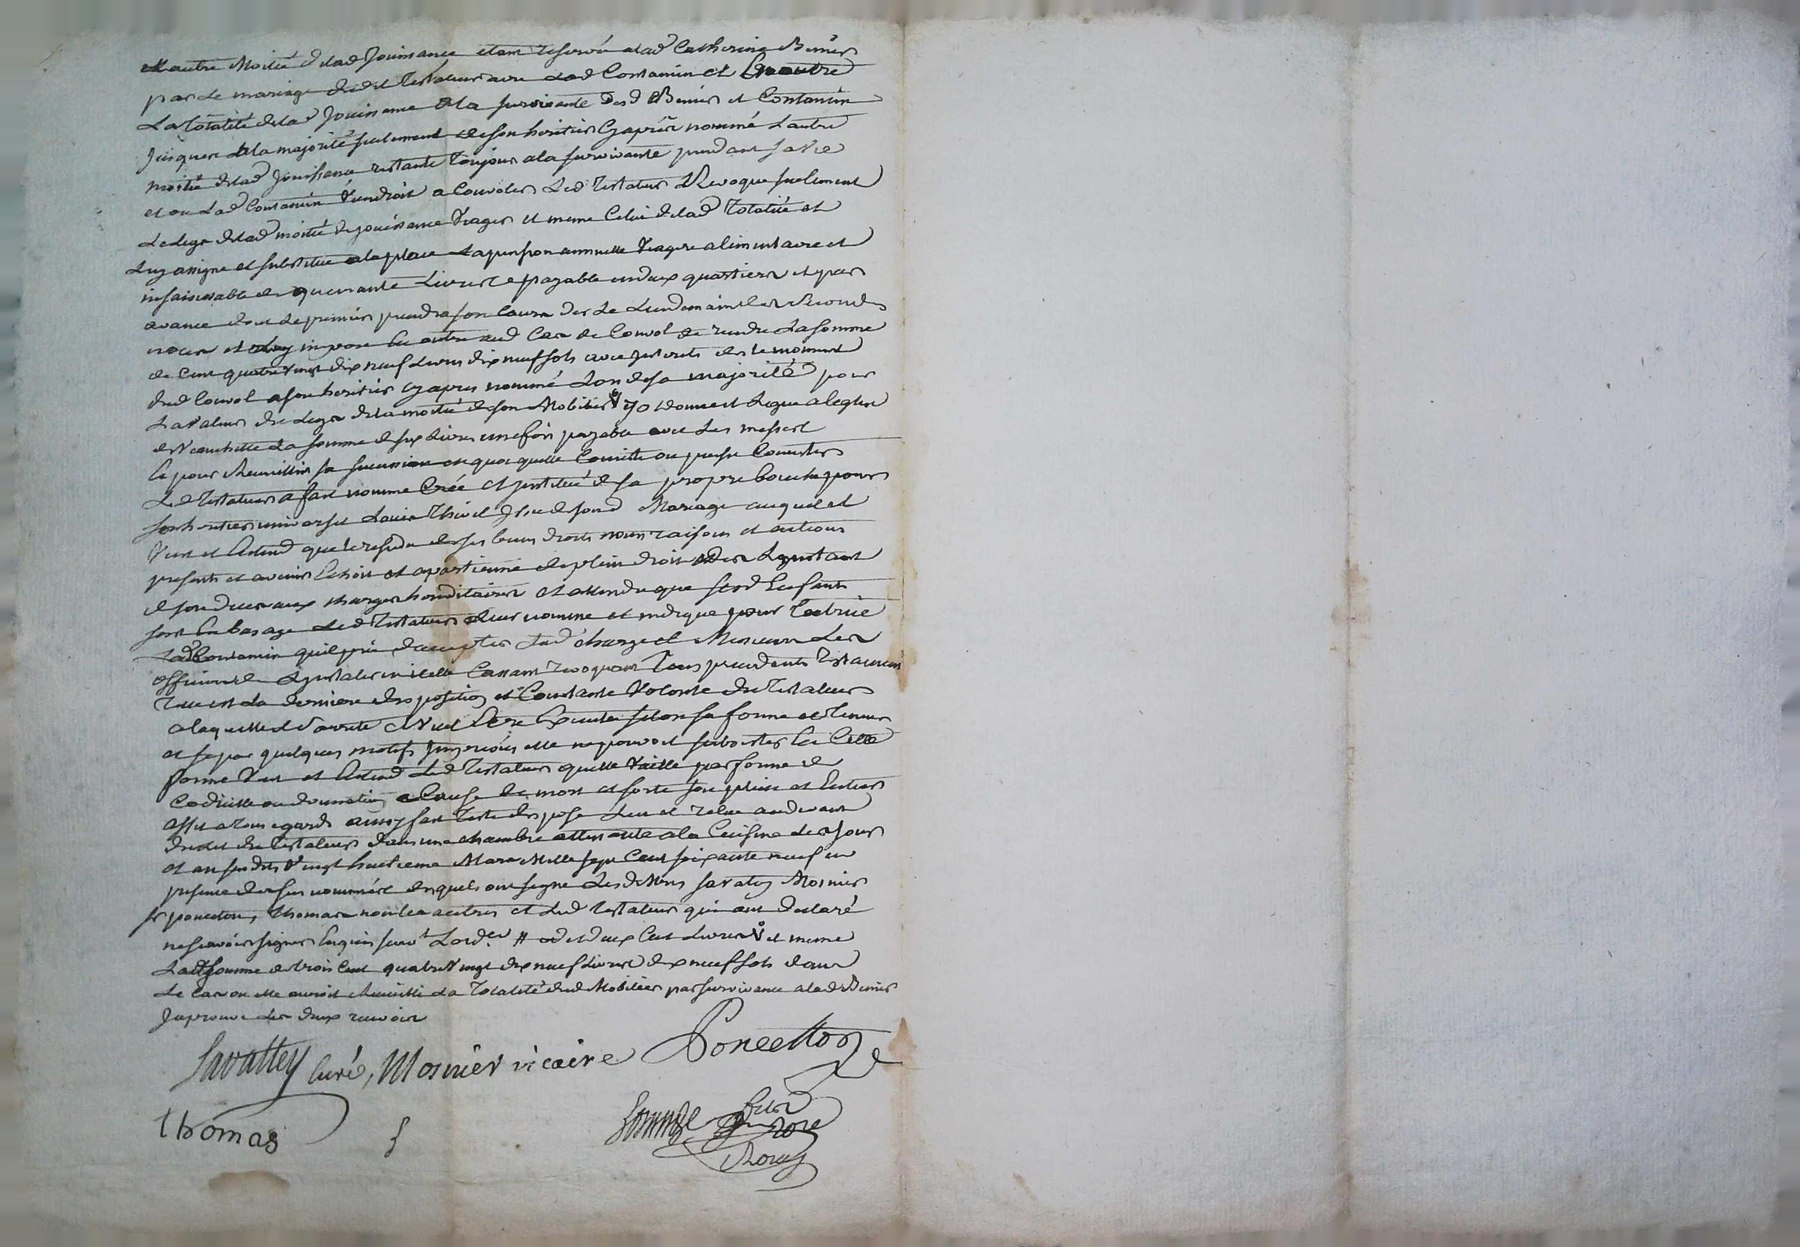 autre moitié de lad jouissance etant reservée a lad Catherine Benier
par le mariage dudit Testateur avec lad Constamin et en outre
La totalité de lad jouissance a la survivante desd Benier et Constamin
jusques a la majorité seulement de son heritier cy après nommé L'autre
moitié de lad jouissance restante toujours a la survivante pendant sa vie
et ou Lad Constamin viendroit a convoler Led Testateur revoque seulement
Le legs de lad moitié de jouissance viager et meme celui de lad totalité et
Luy assigne et substitue a la place La pension annuelle viagere alimentaire et
insaisissable de quarante Livres payable en deux quartiers et par
avance dont le premier prendra son cours des Le Lendemain des secondes
noces et Luy impose en outre aud Cas de Convol de rendre La somme
de cent quatre vingt dix neuf livres dix neuf sols avec interets des le moment
dud Convol a son heritier cy apres nommé Lors de sa majorité pour
La valeur du legs de la moitié de son Mobilier donne et legue a leglise
de La somme de six livres une fois payable avec Les messes
Et pour Recueillir sa succession en quoy quelle Consiste ou puisse Consister
Led Testateur a fait nommé Créé et institué de sa propre bouche pour
son heritier universel Louis issu de sond Mariage auquel il
veut et Entend que le residu de ses biens droits noms raisons et actions
presents et avenir Echoit et apartienne de plein droit des Linstant
de son deces aux charges hereditaires et attendu que sesd Enfants
sont En bas age Led Testateur Leur nomme et indique pour Tutrice
Lad Constamin quil prie d'accepter Lad charge et Messieurs Les
officiers de Linstaler en icelle Cassant revoquant Tous precedents Testaments
Telle est La derniere disposition et Constante Volonté du Testateur
a laquelle il s'arrete et Veut Etre Executée selon sa forme et Teneur
et si par quelques motifs imprévûs elle ne pouvoit subsister En Cette
forme Veut et Entend Led Testateur quelle Vaille par forme de
Codicille ou donnation a Cause de mort et sorte son plein et Entier
effet a tous egards ainsy fait Testé disposé Leu et relue audevant
du lit du Testateur dans une chambre attenante a la Cuisine Les Jour
et an susdits Vingt huitieme Mars Mille sept Cent soixante neuf en
presence des sus nommés desquels ont signé Les dits Mrs Savatey Mosnier
sr poncetton, thomas non les autres et Led Testateur qui ont declaré
ne sçavoir signer Enquis suivt Lord.ce # et deux Cent Livres et meme
Ladt somme de trois Cent quatre vingt dix neuf Livres dix neuf sols dans
Le cas ou elle auroit Recueilli La Totalité dud Mobilier par survivance a lad Benier
Japrouve Les deux renvois
Savattey Curé, Mosnier vicaire Poncetton
thomas